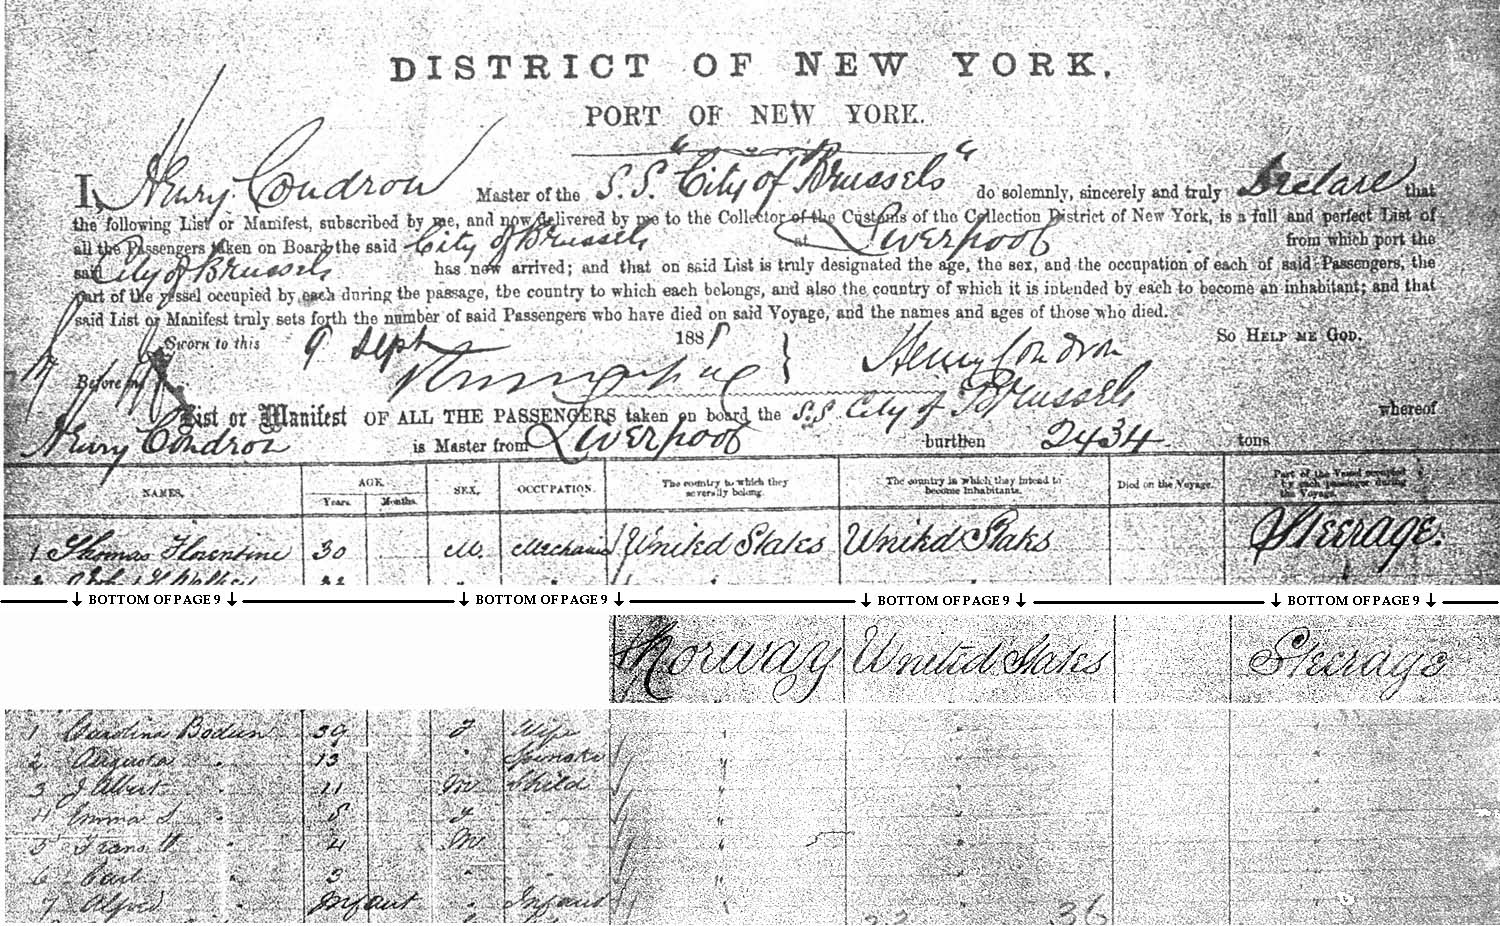 DISTRICT OF NEW YORK.
PORT OF NEW YORK.
I, Henry Condron Master of the S.S. "City of Brussels" do solemnly, sincerely and truly Declare that
the following List or Manifest, subscribed by me, and now delivered by me to the Collector of the Customs of the Collection District of New York, is a full and perfect List of
all the Passengers taken on Board the said City of Brussels at Liverpool from which port the
said City of Brussels has now arrived; and that on said List is truly designated the age, the sex, and the occupation of each of said Passengers, the
part of the vessel occupied by each during the passage, the country to which each belongs, and also the country of which it is intended by each to become an inhabitant; and that
said List or Manifest truly sets forth the number of said Passengers who have died on said Voyage, and the names and ages of those who died.
Sworn to this 9 Sept 1881 So HELP ME GOD.
Before me Henry Condron
List or Manifest OF ALL THE PASSENGERS taken on board the S.S. City of Brussels whereof
Henry Condron is Master from Liverpool burthen 2434 tons
NAMES. AGE. Years. Months. SEX. OCCUPATION. The country to which they severally belong. The country in which they intend to become Inhabitants. Died on the Voyage. Part of the Vessel occupied by each passenger during the Voyage.
1 Thomas Florentine 30 M. Mechanic United States United States Steerage.
↓ BOTTOM OF PAGE 9 ↓ ↓ BOTTOM OF PAGE 9 ↓ ↓ BOTTOM OF PAGE 9 ↓ ↓ BOTTOM OF PAGE 9 ↓
Norway United States Steerage
1 Carolina Bodien 39 F Wife " " "
2 Augusta " 13 " Spinster " " "
3 J Albert " 11 M Child " " "
4 Emma S " 8 F " " " "
5 Frans " 4 M " " " "
6 Carl " 3 " " " " "
7 Alfred " Infant " Infant " " "
36